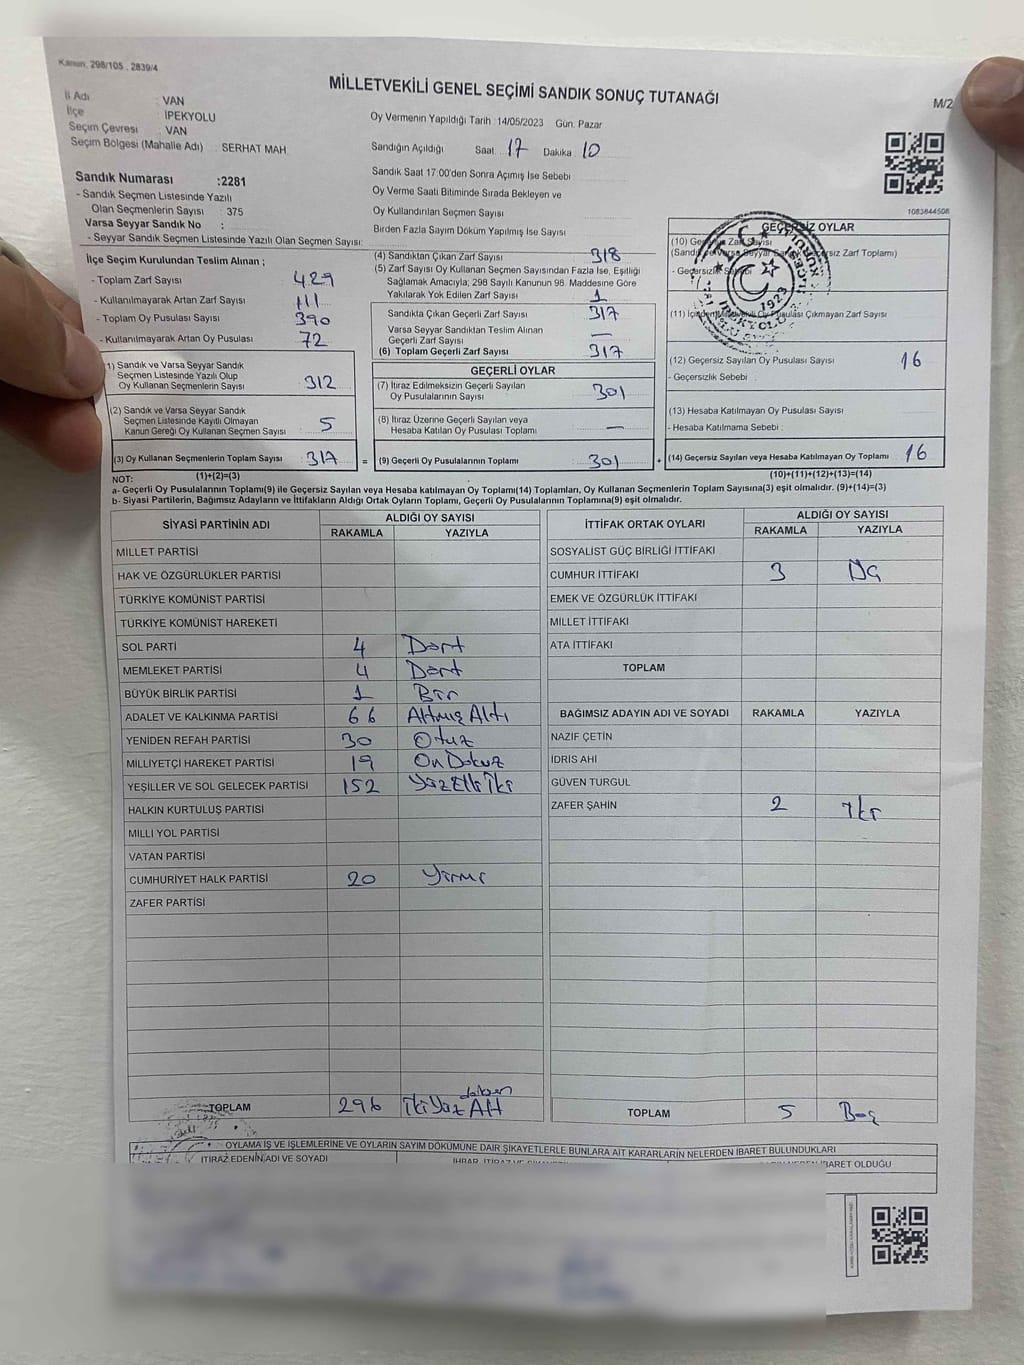 Kanun, 298/105 , 2839/4
MİLLETVEKİLİ GENEL SEÇİMİ SANDIK SONUÇ TUTANAĞI
M/2
İl Adı : VAN
İlçe : İPEKYOLU
Seçim Çevresi : VAN
Seçim Bölgesi (Mahalle Adı) : SERHAT MAH.
Sandık Numarası :2281
- Sandık Seçmen Listesinde Yazılı
Olan Seçmenlerin Sayısı : 375
Varsa Seyyar Sandık No :
- Seyyar Sandık Seçmen Listesinde Yazılı Olan Seçmen Sayısı:
Oy Vermenin Yapıldığı Tarih :14/05/2023 Gün: Pazar
Sandığın Açıldığı Saat: 17 Dakika: 10
Sandık Saat 17:00'den Sonra Açımış İse Sebebi
Oy Verme Saati Bitiminde Sırada Bekleyen ve
Oy Kullandırılan Seçmen Sayısı
Birden Fazla Sayım Döküm Yapılmış İse Sayısı
1083844508
İlçe Seçim Kurulundan Teslim Alınan ;
- Toplam Zarf Sayısı 429
- Kullanılmayarak Artan Zarf Sayısı 111
- Toplam Oy Pusulası Sayısı 390
- Kullanılmayarak Artan Oy Pusulası 72
(1) Sandık ve Varsa Seyyar Sandık
Seçmen Listesinde Yazılı Olup
Oy Kullanan Seçmenlerin Sayısı 312
(2) Sandık ve Varsa Seyyar Sandık
Seçmen Listesinde Kayıtlı Olmayan
Kanun Gereği Oy Kullanan Seçmen Sayısı 5
(3) Oy Kullanan Seçmenlerin Toplam Sayısı 317
(1)+(2)=(3)
(4) Sandıktan Çıkan Zarf Sayısı 318
(5) Zarf Sayısı Oy Kullanan Seçmen Sayısından Fazla İse, Eşitliği
Sağlamak Amacıyla; 298 Sayılı Kanunun 98. Maddesine Göre
Yakılarak Yok Edilen Zarf Sayısı 1
Sandıkta Çıkan Geçerli Zarf Sayısı 317
Varsa Seyyar Sandıktan Teslim Alınan
Geçerli Zarf Sayısı —
(6) Toplam Geçerli Zarf Sayısı 317
GEÇERLİ OYLAR
(7) İtiraz Edilmeksizin Geçerli Sayılan
Oy Pusulalarının Sayısı 301
(8) İtiraz Üzerine Geçerli Sayılan veya
Hesaba Katılan Oy Pusulası Toplamı —
= (9) Geçerli Oy Pusulalarının Toplamı 301
GEÇERSİZ OYLAR
(10) Zarf Sayısı
(Sandık Zarf Toplamı)
- Geçersizlik Sebebi
(11) Oy Pusulası Çıkmayan Zarf Sayısı
(12) Geçersiz Sayılan Oy Pusulası Sayısı 16
- Geçersizlik Sebebi :
(13) Hesaba Katılmayan Oy Pusulası Sayısı
- Hesaba Katılmama Sebebi :
+ (14) Geçersiz Sayılan veya Hesaba Katılmayan Oy Toplamı 16
(10)+(11)+(12)+(13)=(14)
1923
NOT:
a- Geçerli Oy Pusulalarının Toplamı(9) ile Geçersiz Sayılan veya Hesaba katılmayan Oy Toplamı(14) Toplamları, Oy Kullanan Seçmenlerin Toplam Sayısına(3) eşit olmalıdır. (9)+(14)=(3)
b- Siyasi Partilerin, Bağımsız Adayların ve İttifakların Aldığı Ortak Oyların Toplamı, Geçerli Oy Pusulalarının Toplamına(9) eşit olmalıdır.
SİYASİ PARTİNİN ADI ALDIĞI OY SAYISI
RAKAMLA YAZIYLA
MİLLET PARTİSİ
HAK VE ÖZGÜRLÜKLER PARTİSİ
TÜRKİYE KOMÜNİST PARTİSİ
TÜRKİYE KOMÜNİST HAREKETİ
SOL PARTİ 4 Dört
MEMLEKET PARTİSİ 4 Dört
BÜYÜK BİRLİK PARTİSİ 1 Bir
ADALET VE KALKINMA PARTİSİ 66 Altmış Altı
YENİDEN REFAH PARTİSİ 30 Otuz
MİLLİYETÇİ HAREKET PARTİSİ 19 On Dokuz
YEŞİLLER VE SOL GELECEK PARTİSİ 152 Yüz Elli İki
HALKIN KURTULUŞ PARTİSİ
MİLLİ YOL PARTİSİ
VATAN PARTİSİ
CUMHURİYET HALK PARTİSİ 20 Yirmi
ZAFER PARTİSİ
TOPLAM 296 İki Yüz doksan Altı
İTTİFAK ORTAK OYLARI ALDIĞI OY SAYISI
RAKAMLA YAZIYLA
SOSYALİST GÜÇ BİRLİĞİ İTTİFAKI
CUMHUR İTTİFAKI 3 Üç
EMEK VE ÖZGÜRLÜK İTTİFAKI
MİLLET İTTİFAKI
ATA İTTİFAKI
TOPLAM
BAĞIMSIZ ADAYIN ADI VE SOYADI RAKAMLA YAZIYLA
NAZIF ÇETİN
İDRİS AHI
GÜVEN TURGUL
ZAFER ŞAHİN 2 İki
TOPLAM 5 Beş
OYLAMA İŞ VE İŞLEMLERİNE VE OYLARIN SAYIM DÖKÜMÜNE DAİR ŞİKAYETLERLE BUNLARA AİT KARARLARIN NELERDEN İBARET BULUNDUKLARI
İTİRAZ EDENİN ADI VE SOYADI
İBARET OLDUĞU